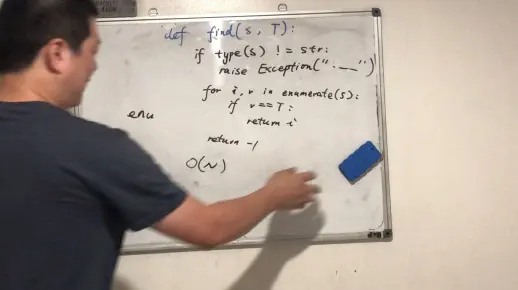 def find(s, T):
if type(s) != str:
raise Exception(".__")
for i, v in enumerate(s):
enu
if v == T:
return i
return -1
O(N)